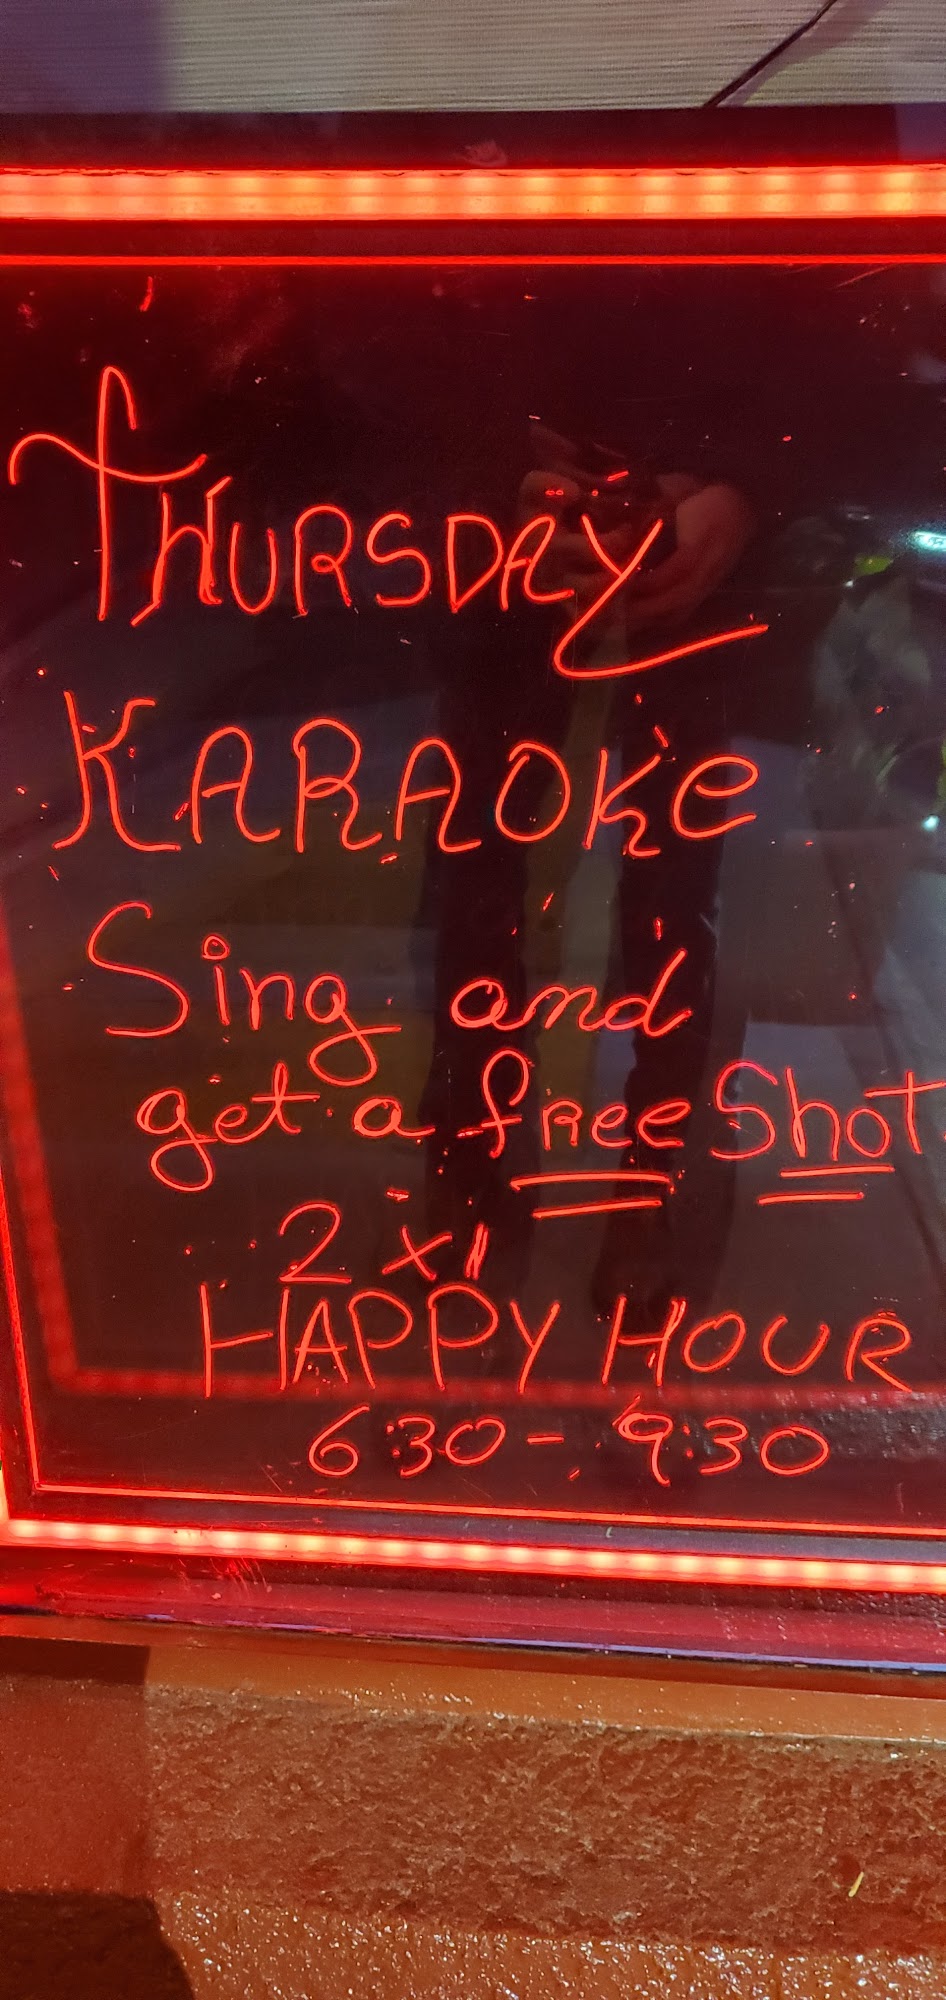 THURSDAY
KARAOKe
Sing and
get a fRee Shot
2 x 1
HAPPY HOUR
6:30 - 9:30